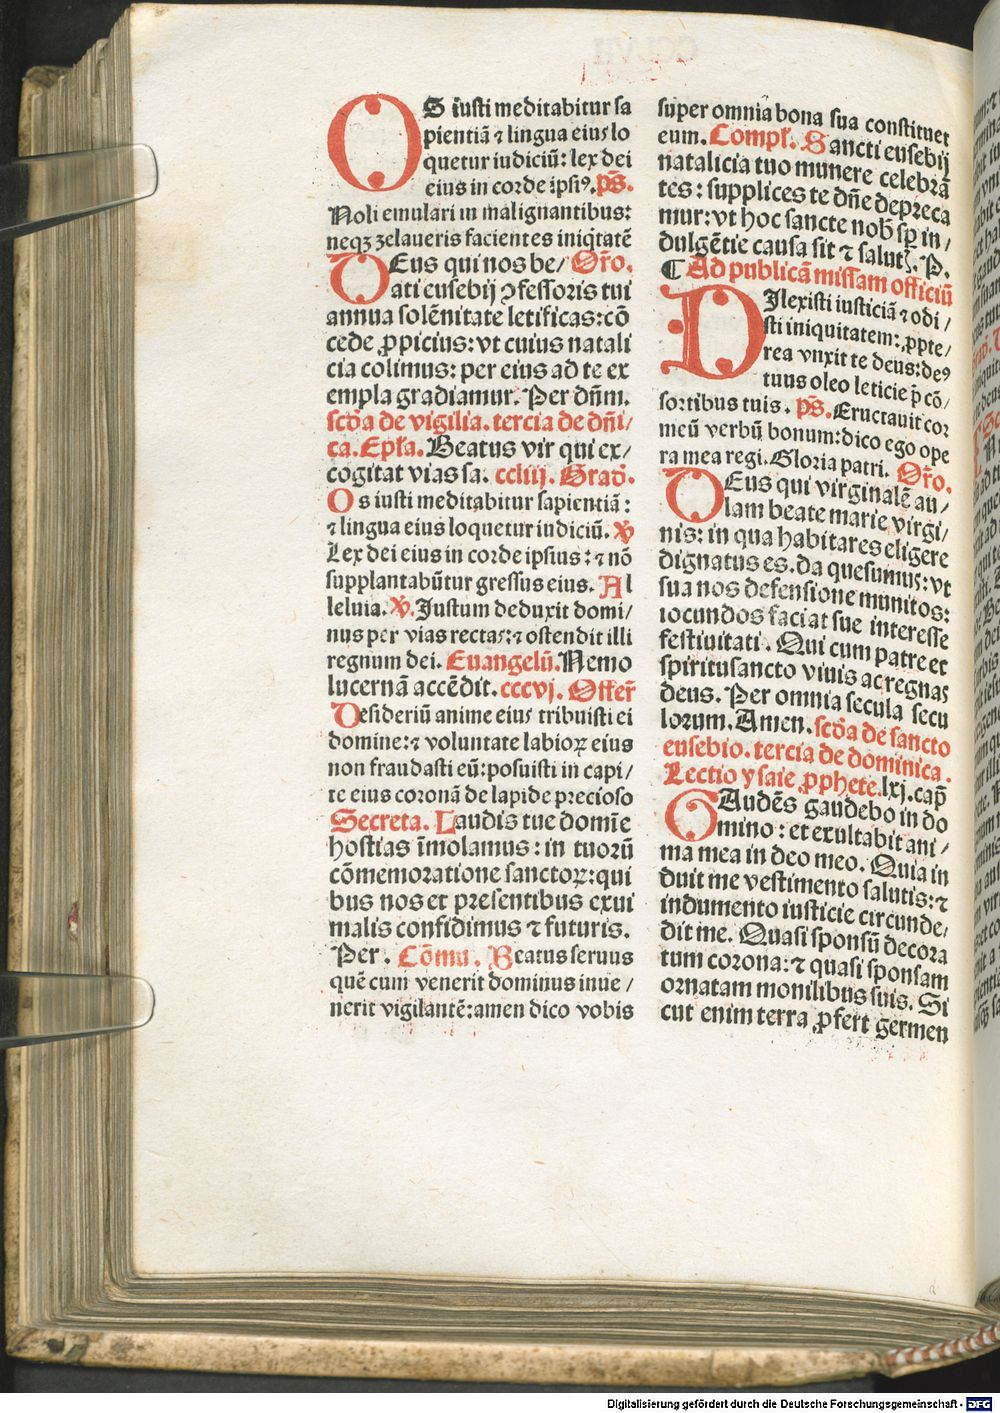 OS iusti meditabitur sa
pientiā ⁊ lingua eius lo
quetur iudiciū: lex dei
eius in corde ipsiꝰ. ps̄.
Noli emulari in malignantibus:
neqꝫ zelaueris facientes iniq̇tatē
DEus qui nos be/ Or̄o.
ati eusebij ꝯfessoris tui
annua solēnitate letificas: cō
cede ꝓpicius: vt cuius natali
cia colimus: per eius ad te ex
empla gradiamur. Per dn̄m.
scd̄a de vigilia. tercia de dn̄i/
ca. Epl̄a. Beatus vir qui ex/
cogitat vias sa. ccliij. Grad̄.
Os iusti meditabitur sapientiā:
⁊ lingua eius loquetur iudiciū. ℣
Lex dei eius in corde ipsius: ⁊ nō
supplantabūtur gressus eius. Al
leluia. ℣. Justum deduxit domi/
nus per vias rectas: ⁊ ostendit illi
regnum dei. Euangeliū. Nemo
lucernā accēdit. cccvj. Offer̄
Desideriū anime eius tribuisti ei
domine: ⁊ voluntate labioꝝ eius
non fraudasti eū: posuisti in capi/
te eius coronā de lapide precioso
Secreta. Laudis tue domīe
hostias īmolamus: in tuorū
cōmemoratione sanctoꝝ: qui
bus nos et presentibus exui
malis confidimus ⁊ futuris.
Per. Cōmu. Beatus seruus
quē cum venerit dominus inue/
nerit vigilantē: amen dico vobis
super omnia bona sua constituet
eum. Compl̄. Sancti eusebij
natalicia tuo munere celebrā
tes: supplices te dn̄e depreca
mur: vt hoc sancte nob̄ sp̄ in/
dulgētie causa sit ⁊ salut. P.
¶ Ad publicā missam officiū
DIlexisti iusticiā ⁊ odi/
sti iniquitatem: ꝓpte/
rea vnxit te deus: deꝰ
tuus oleo leticie p̄ cō/
sortibus tuis. ps̄. Eructauit cor
meū verbū bonum: dico ego ope
ra mea regi. Gloria patri. Or̄o.
DEus qui virginalē au/
lam beate marie virgi/
nis: in qua habitares eligere
dignatus es. da quesumus: vt
sua nos defensione munitos:
iocundos faciat sue interesse
festiuitati. Qui cum patre et
spiritusancto viuis ac regnas
deus. Per omnia secula secu
lorum. Amen. scd̄a de sancto
eusebio. tercia de dominica.
Lectio ysaie ꝓphete. lxj. cap̄
GAudēs gaudebo in do
mino: et exultabit ani/
ma mea in deo meo. Quia in
duit me vestimento salutis: ⁊
indumento iusticie circunde/
dit me. Quasi sponsū decora
tum corona: ⁊ quasi sponsam
ornatam monilibus suis. Si
cut enim terra ꝓfert germen
Digitalisierung gefördert durch die Deutsche Forschungsgemeinschaft - DFG